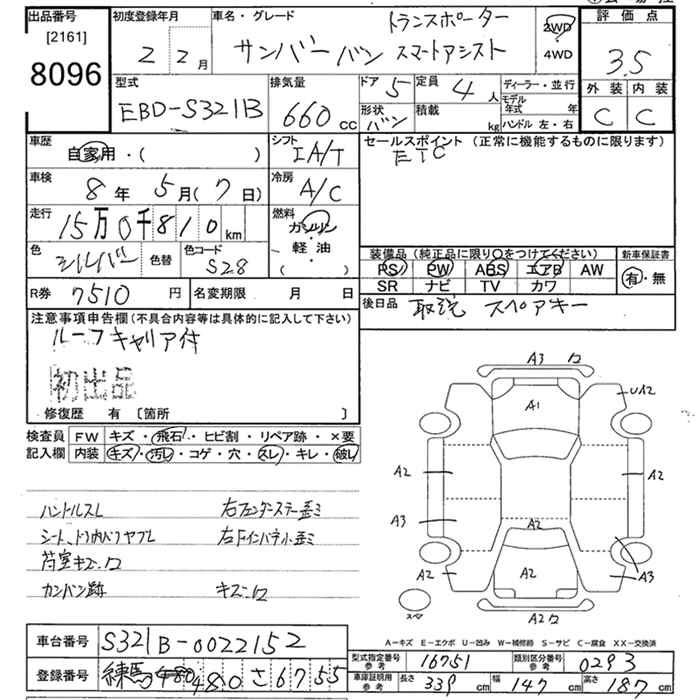 出品番号 [2161] 8096
初度登録年月 2 2月
車名・グレード サンバーバン トランスポーター スマートアシスト
2WD 4WD
評価点 3.5
外装 C 内装 C
型式 EBD-S321B
排気量 660 cc
ドア 5 定員 4人
形状 バン 積載 kg
ディーラー・並行
モデル年式 年
ハンドル 左・右
車歴 自家用・( )
シフト IA/T
セールスポイント(正常に機能するものに限ります)
ETC
車検 8年 5月(7日)
冷房 A/C
走行 15万0千810 km
燃料 ガソリン 軽・油 ( )
色 シルバー 色替 色コード S28
装備品(純正品に限り○をつけてください) 新車保証書
PS PW ABS エアB AW 有・無
SR ナビ TV カワ
R券 7510円 名変期限 月 日
後日品 取説 スペアキー
注意事項申告欄(不具合内容等は具体的に記入して下さい)
ルーフキャリア付
初出品
修復歴 有 [箇所 ]
検査員記入欄 FW キズ・飛石・ヒビ割・リペア跡・×要
内装 キズ・汚レ・コゲ・穴・スレ・キレ・破レ
ハンドルスレ
シート、ドア内バリヤブレ
荷室キズ・ワ
カンバン跡 キズ・ワ
A3 ワ
A1
UA2
A2 A2
A3 A2
A2 A2 A3
スペア
A2ワ
A-キズ E-エクボ U-凹み W-補修跡 S-サビ C-腐食 XX-交換済
車台番号 S321B-0022152
登録番号 練馬 480 さ 6755
型式指定番号 参考 16751 類別区分番号 参考 0293
車庫証明用 参考 長さ 339 cm 幅 147 cm 高さ 187 cm